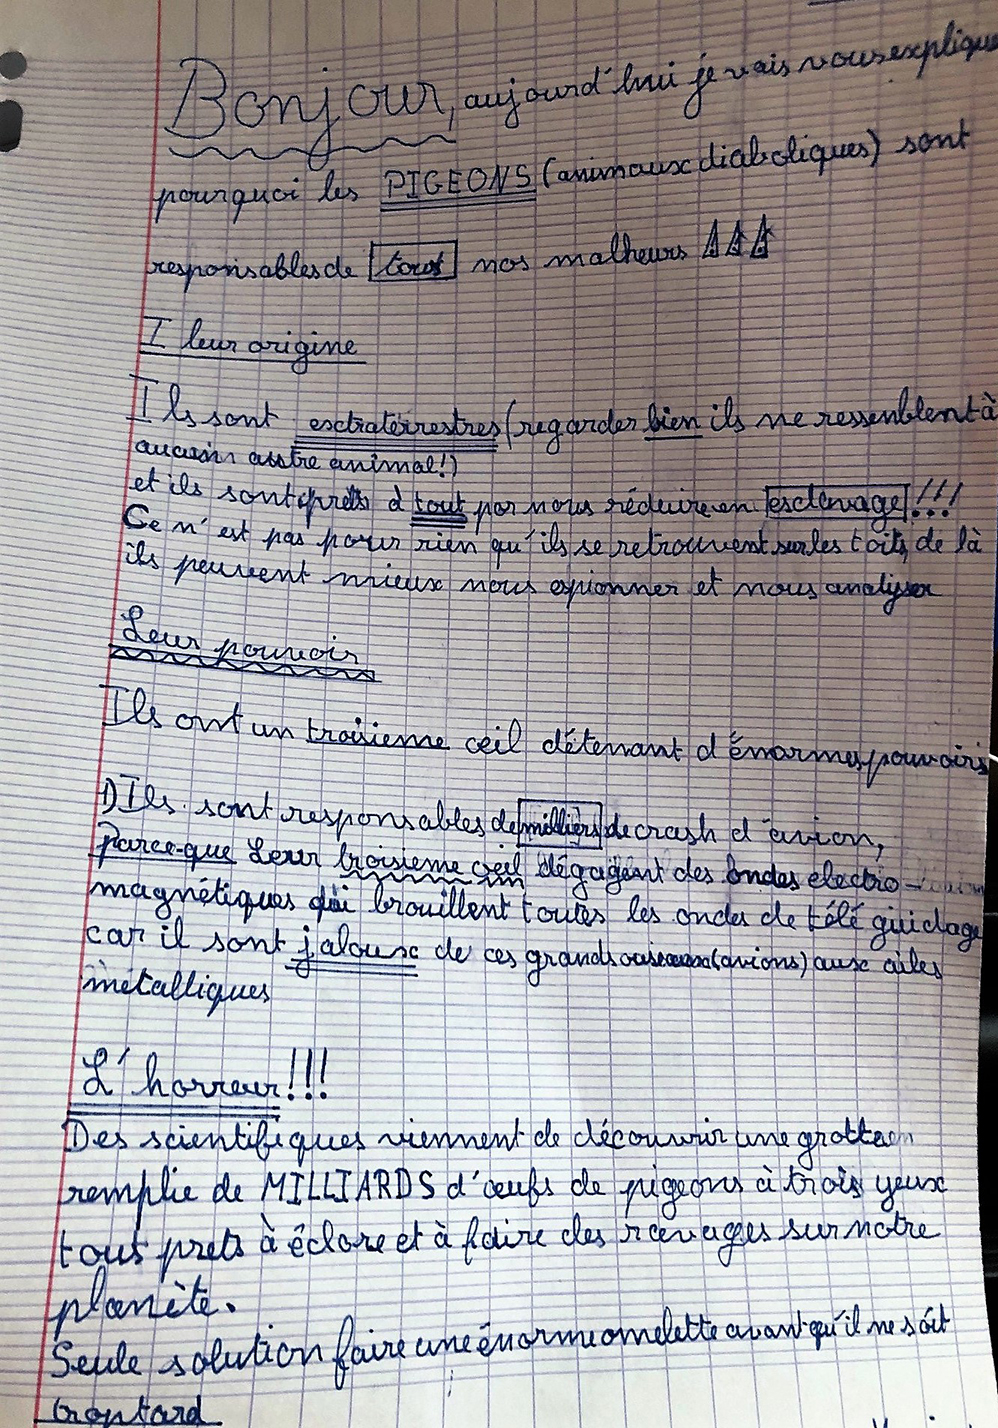 Bonjour, aujourd'hui je vais vous explique
pourquoi les PIGEONS (animaux diaboliques) sont
responsables de tout nos malheurs
I leur origine
Ils sont extraterrestres (regarder bien ils ne ressemblent à
aucun autre animal!)
et ils sont prêts à tout par nous réduire en esclavage!!!
Ce n'est pas pour rien qu'ils se retrouvent sur les toits, de là
ils peuvent mieux nous espionner et nous analyser
Leur pouvoir
Ils ont un troisieme œil détenant d'énormes pouvoirs
1) Ils sont responsables de milliers de crash d'avion,
Parce-que Leur troisieme œil dégagent des ondes electro-
magnétiques qui brouillent toutes les ondes de télé guidage
car il sont jaloux de ces grands oiseaux (avions) aux ailes
métalliques
L'horreur!!!
Des scientifiques viennent de découvrir une grotte
remplie de MILLIARDS d'œufs de pigeons à trois yeux
tous prets à éclore et à faire des ravages sur notre
planète.
Seule solution faire une énorme omelette avant qu'il ne soit
trop tard